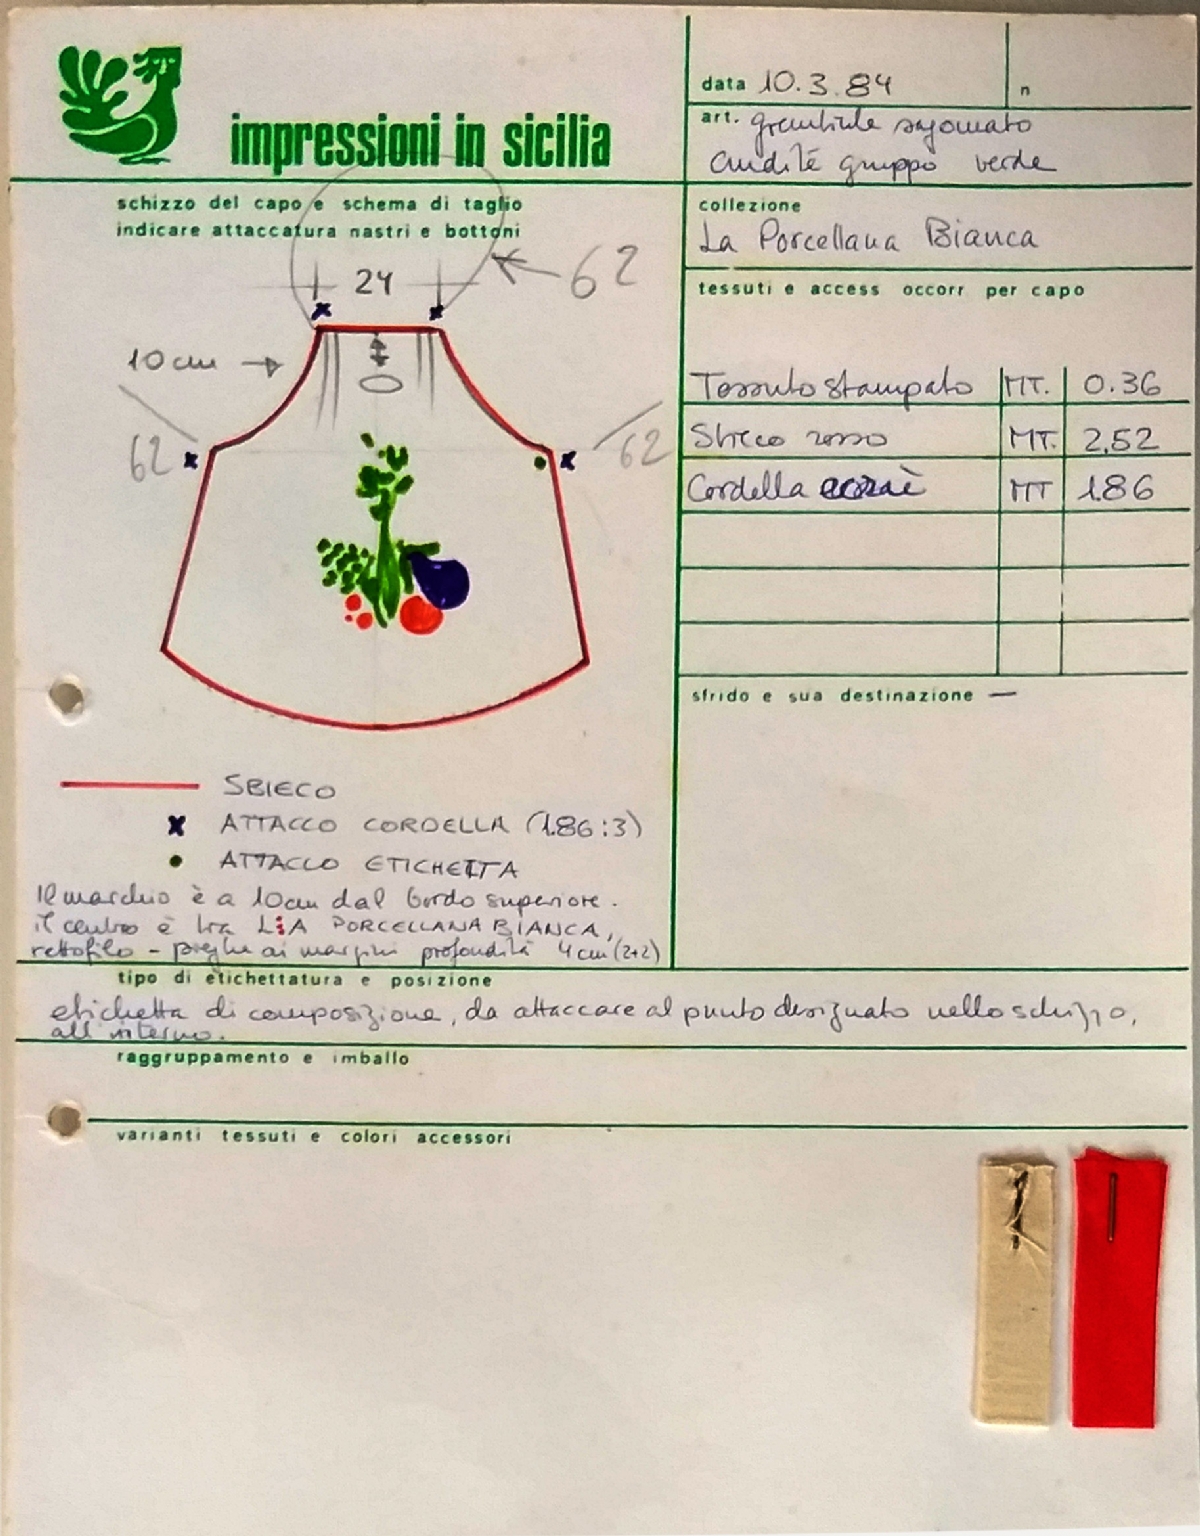 impressioni in sicilia
data 10.3.84
n
art. grembiule sagomato
crudité gruppo verde
schizzo del capo e schema di taglio
indicare attaccatura nastri e bottoni
collezione
La Porcellana Bianca
tessuti e access occorr per capo
24
62
10 cm
62
62
Tessuto stampato MT. 0.36
Sbieco rosso MT. 2,52
Cordella ecrue MT 1.86
sfrido e sua destinazione —
SBIECO
x ATTACCO CORDELLA (1.86:3)
• ATTACCO ETICHETTA
Il marchio è a 10cm dal bordo superiore.
il centro è tra LA PORCELLANA BIANCA,
rettofilo - pieghe ai margini profondità 4 cm (2+2)
tipo di etichettatura e posizione
etichetta di composizione, da attaccare al punto designato nello schizzo,
all'interno.
raggruppamento e imballo
varianti tessuti e colori accessori